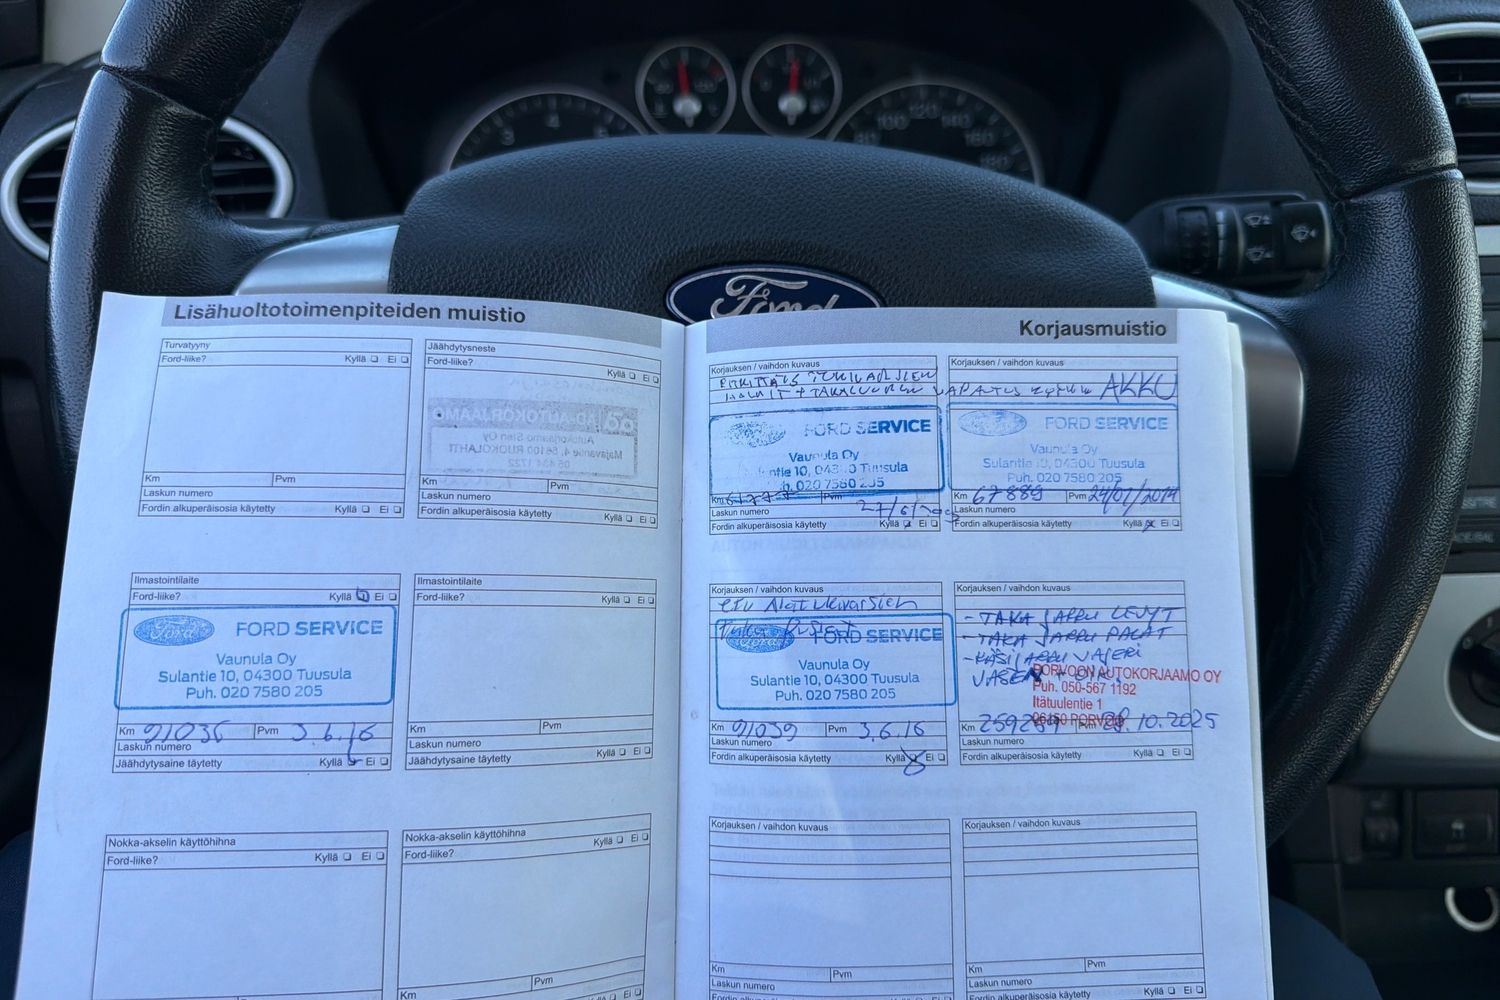 3
4
5
80
100
120
140
160
180
Ford
Lisähuoltotoimenpiteiden muistio
Turvatyyny
Ford-liike? Kyllä Ei
Km Pvm
Laskun numero
Fordin alkuperäisosia käytetty Kyllä Ei
Jäähdytysneste
Ford-liike?
Kyllä Ei
Km Pvm
Laskun numero
Fordin alkuperäisosia käytetty Kyllä Ei
Ilmastointilaite
Ford-liike? Kyllä Ei
Ford FORD SERVICE
Vaunula Oy
Sulantie 10, 04300 Tuusula
Puh. 020 7580 205
Km 91036 Pvm 3.6.16
Laskun numero
Jäähdytysaine täytetty Kyllä Ei
Ilmastointilaite
Ford-liike? Kyllä Ei
Km Pvm
Laskun numero
Jäähdytysaine täytetty Kyllä Ei
Nokka-akselin käyttöhihna
Ford-liike? Kyllä Ei
Km Pvm
Nokka-akselin käyttöhihna
Ford-liike? Kyllä Ei
Km Pvm
Laskun numero
Kyllä Ei
Korjausmuistio
Korjauksen / vaihdon kuvaus
FORD SERVICE
Vaunula Oy
Sulantie 10, 04300 Tuusula
Puh. 020 7580 205
Km Pvm
27/6/
Laskun numero
Fordin alkuperäisosia käytetty Kyllä Ei
Korjauksen / vaihdon kuvaus
AKKU
FORD SERVICE
Vaunula Oy
Sulantie 10, 04300 Tuusula
Puh. 020 7580 205
Km 67889 Pvm 24/01/2014
Laskun numero
Fordin alkuperäisosia käytetty Kyllä Ei
Korjauksen / vaihdon kuvaus
etu Alatukivarsien
FORD SERVICE
Vaunula Oy
Sulantie 10, 04300 Tuusula
Puh. 020 7580 205
Km 91039 Pvm 3.6.16
Laskun numero
Fordin alkuperäisosia käytetty Kyllä Ei
Korjauksen / vaihdon kuvaus
- TAKA JARRU LEVYT
- TAKA JARRU PALAT
- KÄSIJARRU VAJERI
VASEN +
PORVOON AUTOKORJAAMO OY
Puh. 050-567 1192
Itätuulentie 1
06150 PORVOO
Km Pvm 28.10.2025
Laskun numero
Fordin alkuperäisosia käytetty Kyllä Ei
Korjauksen / vaihdon kuvaus
Km Pvm
Laskun numero
Fordin alkuperäisosia käytetty Kyllä Ei
Korjauksen / vaihdon kuvaus
Km Pvm
Laskun numero
Fordin alkuperäisosia käytetty Kyllä Ei